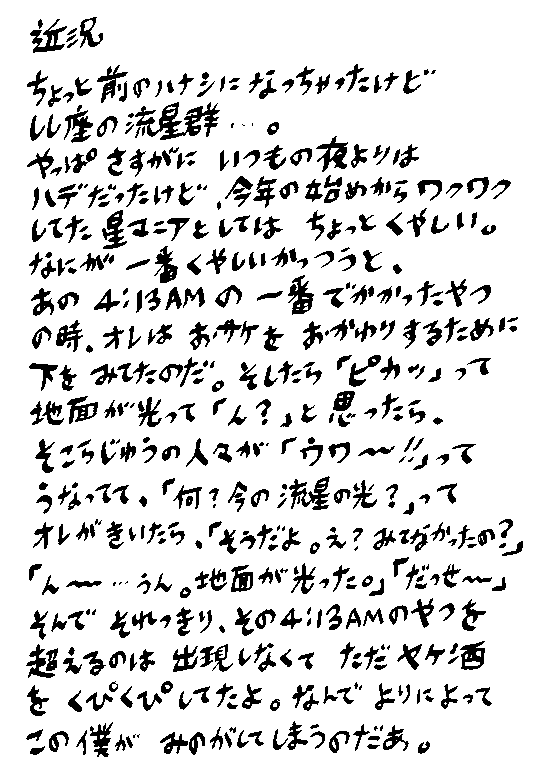 近況
ちょっと前のハナシになっちゃったけど
しし座の流星群…。
やっぱ さすがに いつもの夜よりは
ハデだったけど、今年の始めからワクワク
してた 星マニアとしては ちょっとくやしい。
なにが 一番くやしいかっつうと、
あの 4:13AMの 一番でかかったやつ
の時、オレは おサケを おかわりするために
下を みてたのだ。そしたら「ピカッ」って
地面が光って「ん?」と思ったら、
そこらじゅうの人々が「ウワ〜!!」って
うなってて、「何?今の流星の光?」って
オレがきいたら、「そうだよ。え?みてなかったの?」
「ん〜…うん。地面が光った。」「だっせ〜」
そんで それっきり、その4:13AMのやつを
超えるのは 出現しなくて ただ ヤケ酒
を くぴくぴしてたよ。なんで よりによって
この僕が みのがしてしまうのだあ。